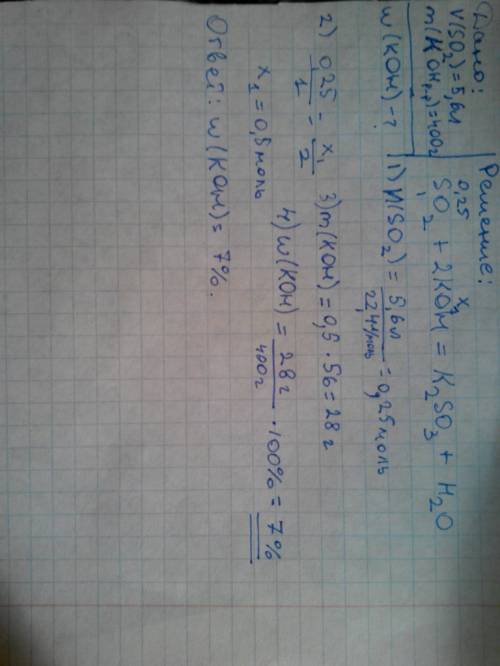 Дано:
V(SO2)=5,6л
m(KOHр-р)=400г
w(KOH)-?
Решение:
0,25 x1
SO2 + 2KOH = K2SO3 + H2O
1
1) n(SO2) = 5,6л / 22,4л/моль = 0,25моль
2) 0,25 / 1 = x1 / 2
x1 = 0,5моль
3) m(KOH) = 0,5 · 56 = 28 г
4) w(KOH) = 28 г / 400г · 100% = 7%
Ответ: w(KOH) = 7%.